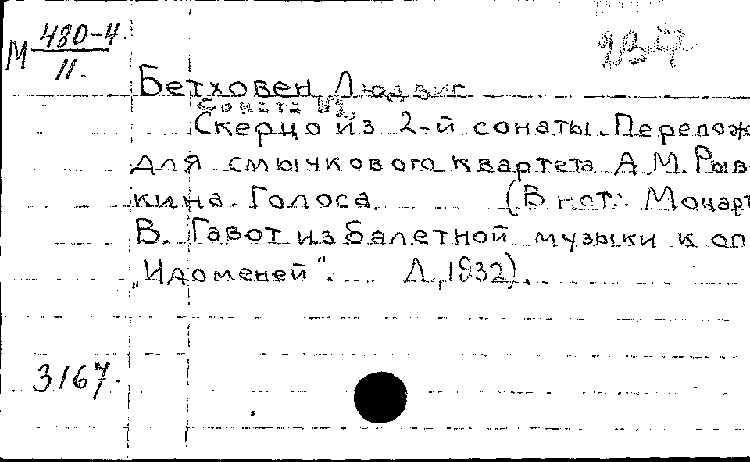 М 480-4
11.
Бетховен Людвиг
Соната №2
Скерцо из 2-й сонаты. Перелож
для смычкового квартета А.М. Рыв
кина. Голоса (В нот: Моцарт
В. Гавот из балетной музыки к оп
„Идоменей". Л, 1932).
3167.